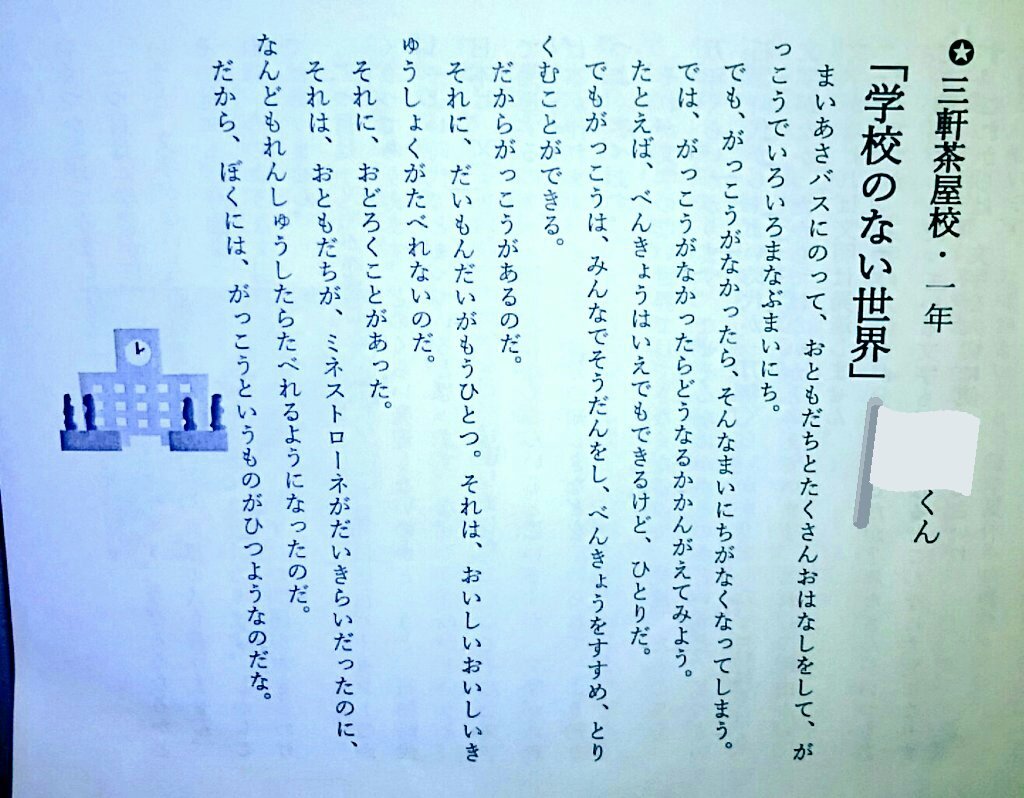 ✪三軒茶屋校・一年
くん
「学校のない世界」
まいあさバスにのって、おともだちとたくさんおはなしをして、が
っこうでいろいろまなぶまいにち。
でも、がっこうがなかったら、そんなまいにちがなくなってしまう。
では、がっこうがなかったらどうなるかかんがえてみよう。
たとえば、べんきょうはいえでもできるけど、ひとりだ。
でもがっこうは、みんなでそうだんをし、べんきょうをすすめ、とり
くむことができる。
だからがっこうがあるのだ。
それに、だいもんだいがもうひとつ。それは、おいしいおいしいき
ゅうしょくがたべれないのだ。
それに、おどろくことがあった。
それは、おともだちが、ミネストローネがだいきらいだったのに、
なんどもれんしゅうしたらたべれるようになったのだ。
だから、ぼくには、がっこうというものがひつようなのだな。